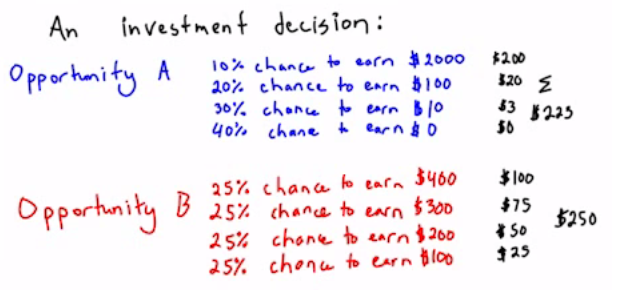 An investment decision:
Opportunity A
10% chance to earn $2000 $200
20% chance to earn $100 $20 Σ
30% chance to earn $10 $3 $223
40% chane to earn $0 $0
Opportunity B
25% chance to earn $400 $100
25% chance to earn $300 $75 $250
25% chance to earn $200 $50
25% chance to earn $100 $25